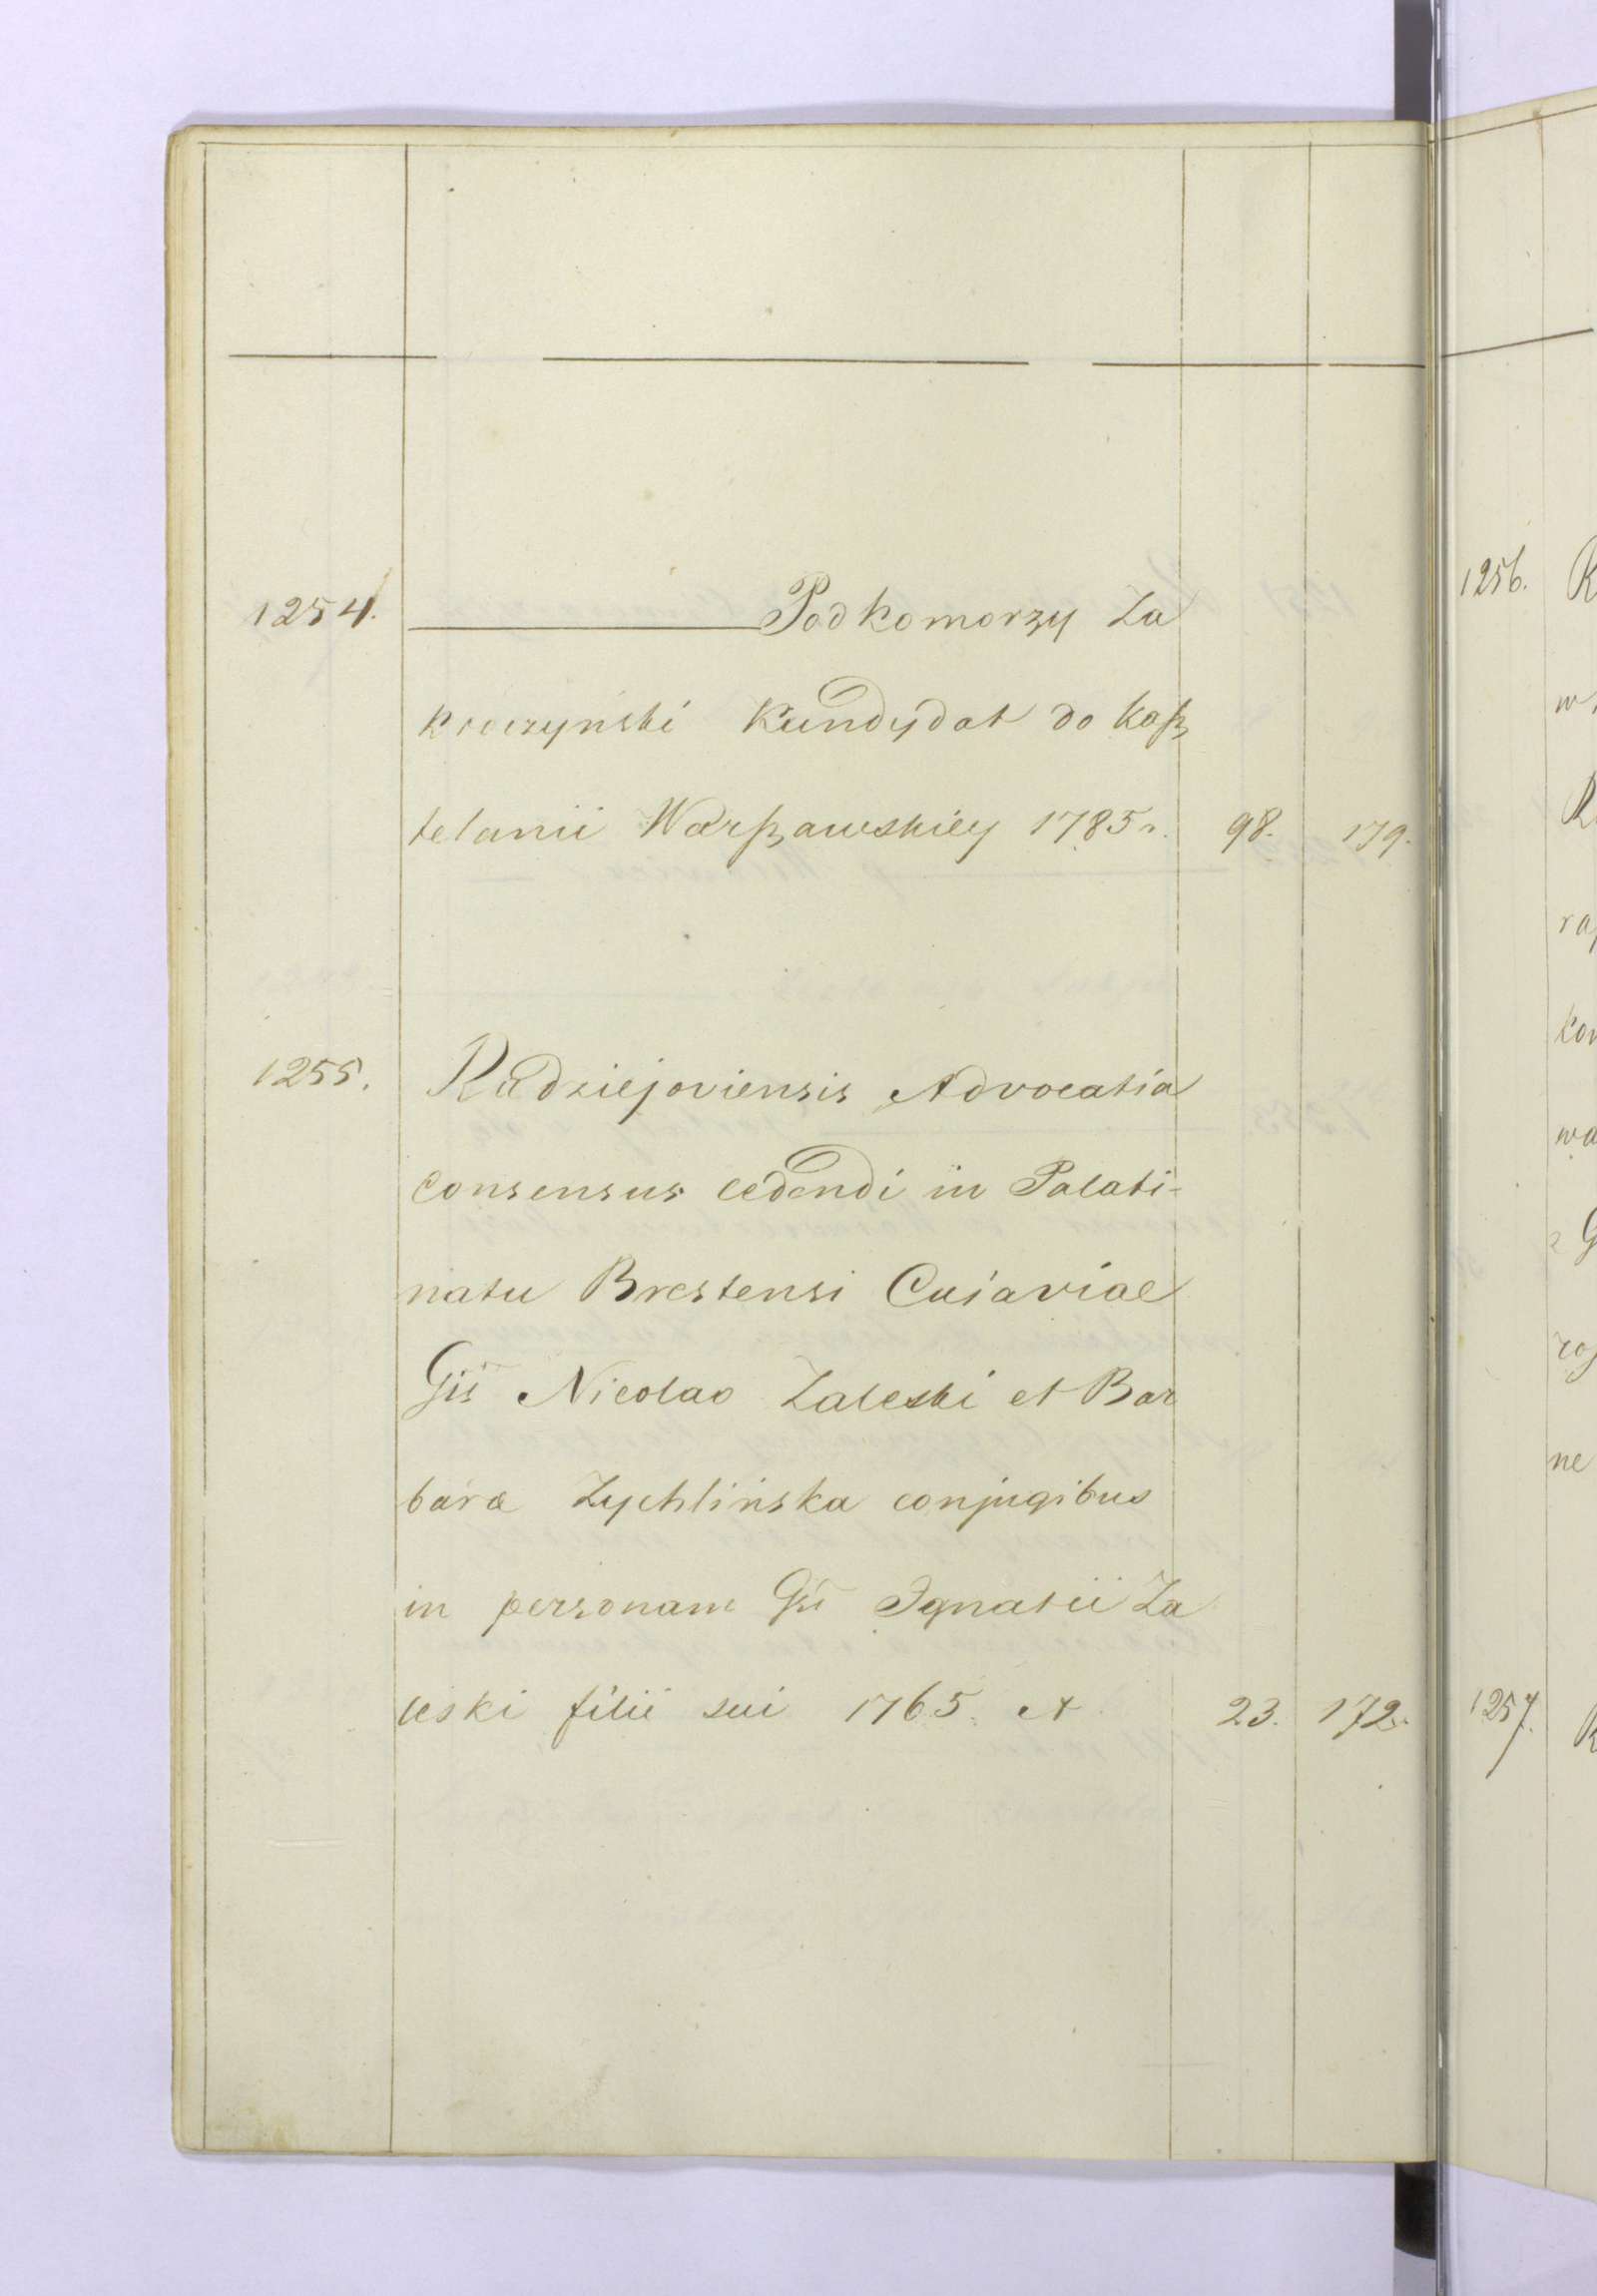 1254. Podkomorzy Za
kroczyński Kandydat do Kaſz
telanii Warſzawskiey 1785 r. 98. 179.
1255. Radziejoviensis Advocatia
consensus cedendi in Palati-
natu Brestensi Cujaviae
Gis Nicolao Zaleski et Bar
bara Zychlińska conjugibus
in personam Gsi Ignatii Za
leski filii sui 1765. A 23. 172.
1256. R
w
R
ra
kon
wa
G
ne
1257. R